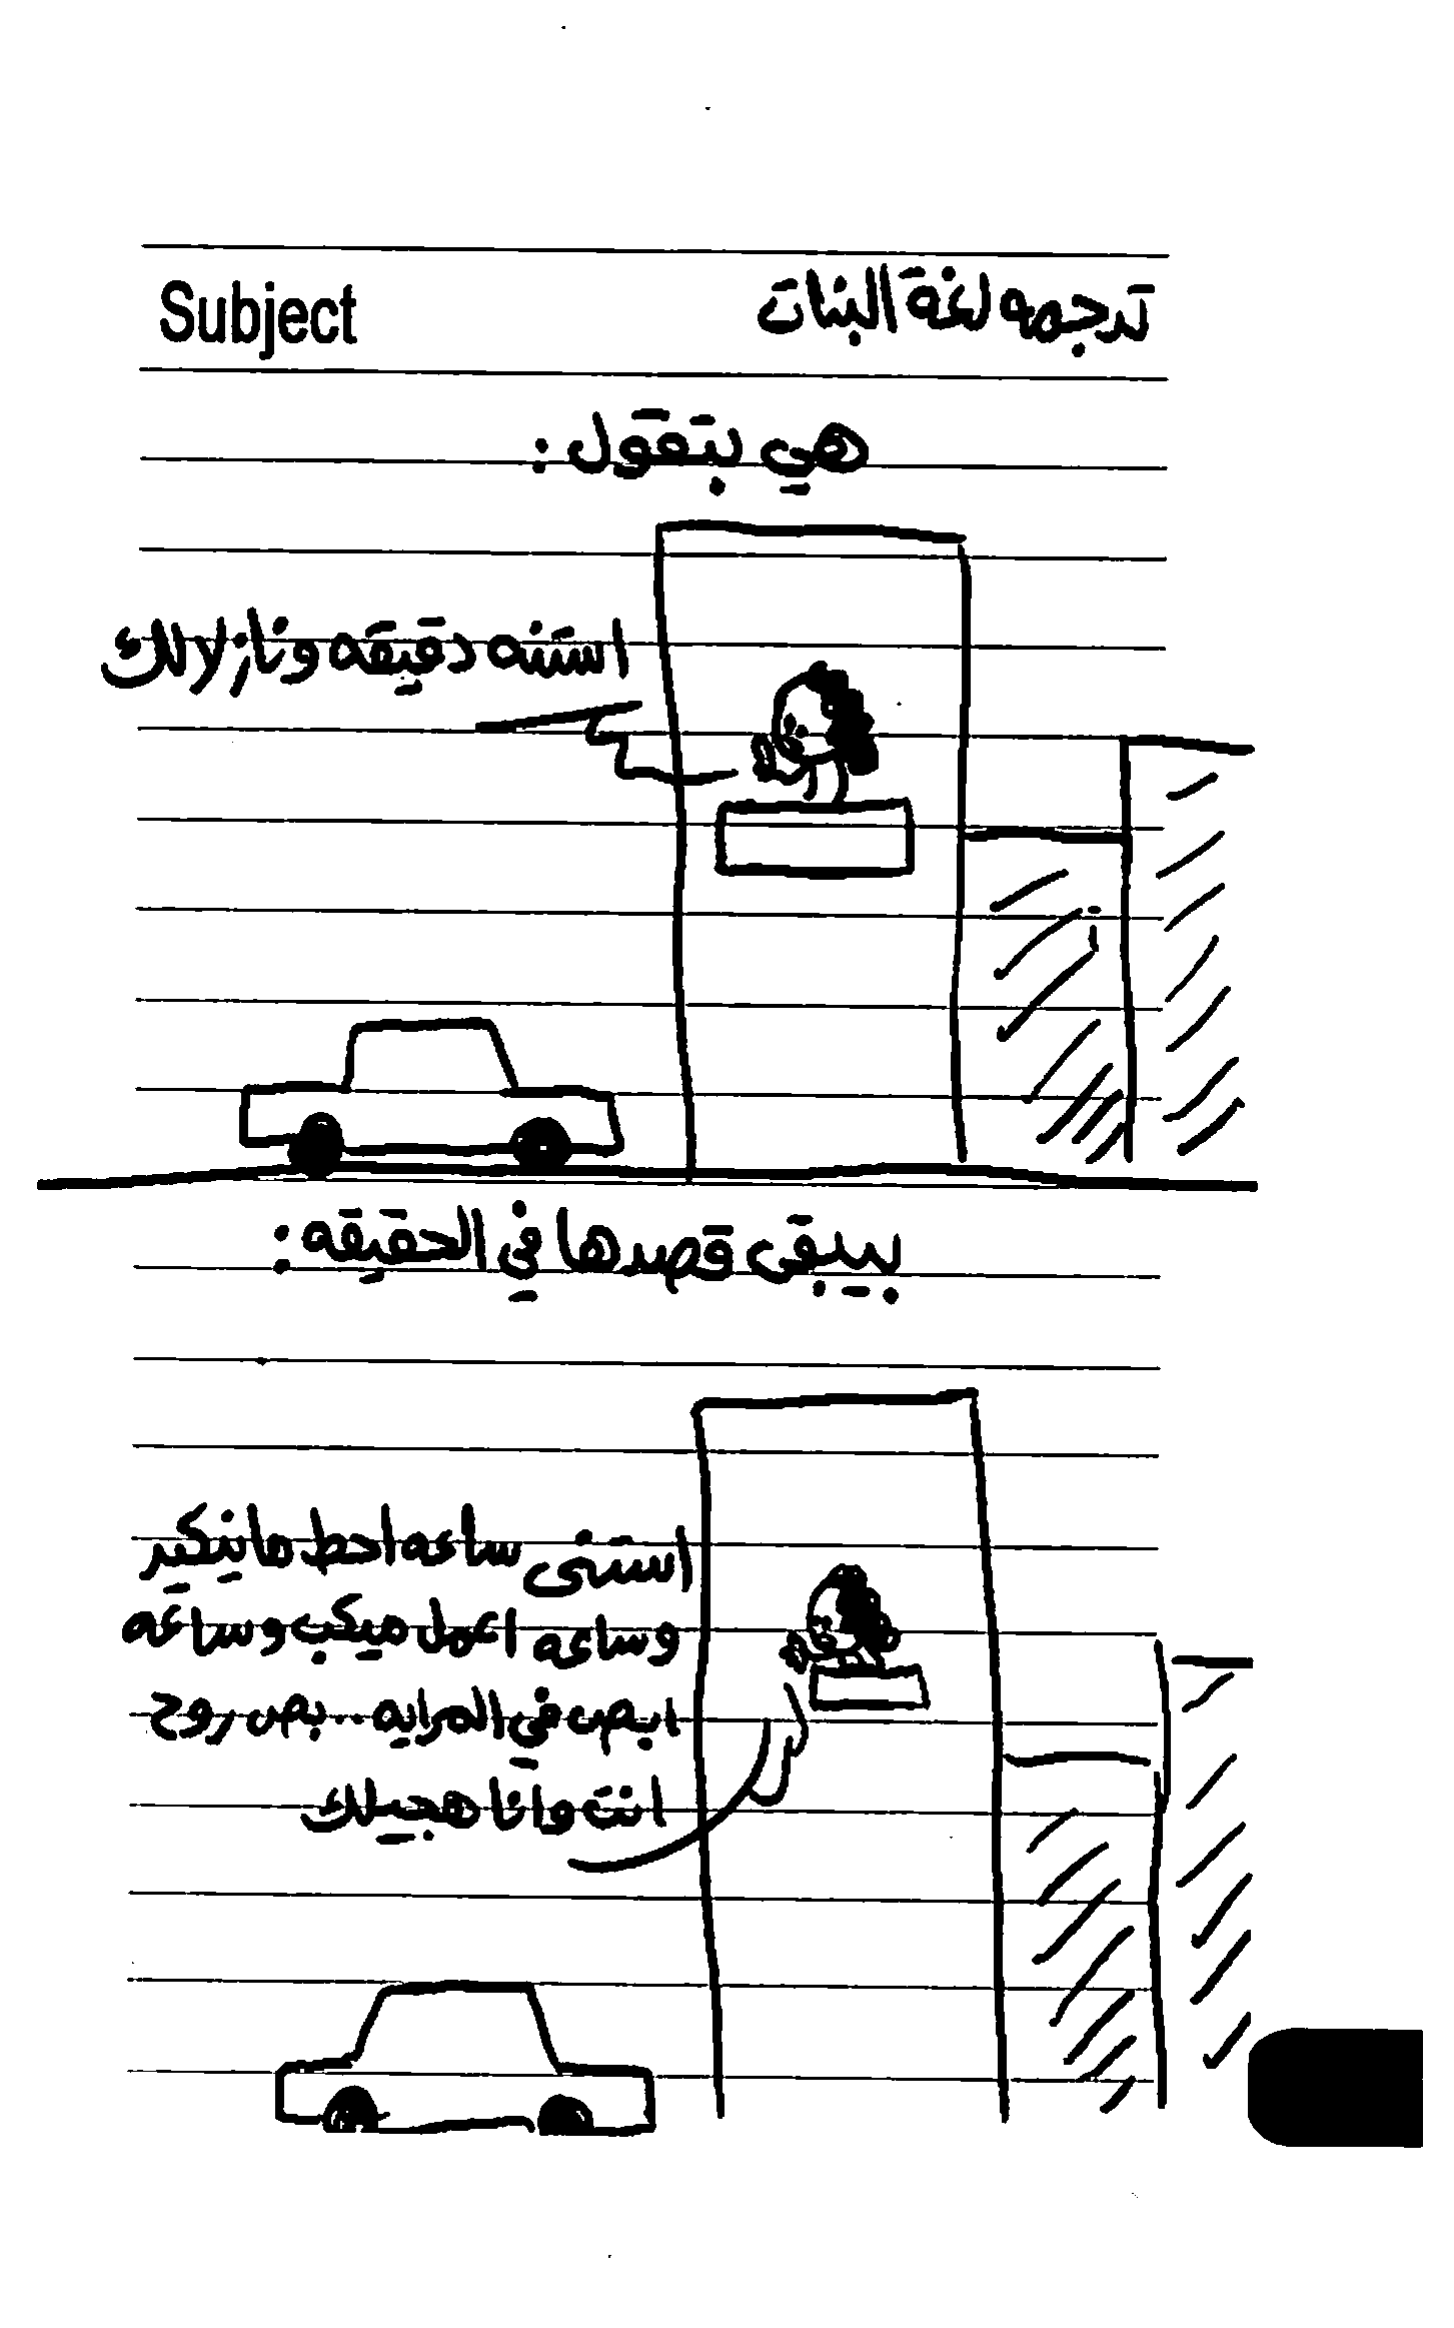 Subject
ترجمه لغة البنات
هي بتقول :
استنه دقيقه ونازلالك
يبقى قصدها في الحقيقه :
استنى ساعه احط مانيكير
وساعه اعمل ميكب وساعه
ابص في المرايه .. بص روح
انت وانا هجيلك